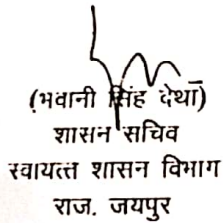 (भवानी सिंह देथा)
शासन सचिव
स्वायत्त शासन विभाग
राज. जयपुर